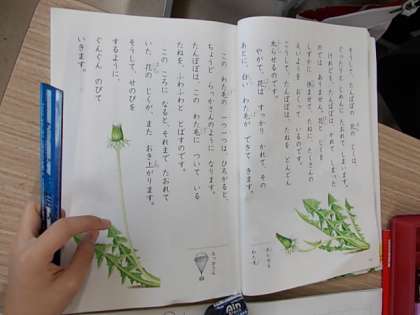 そうして、たんぽぽの花のじくは、
ぐったりとじめんにたおれてしまいます。
けれども、たんぽぽは、かれてしまった
のではありません。花とじくを
しずかに休ませて、たねに、たくさんの
えいようをおくっているのです。
こうして、たんぽぽは、たねをどんどん
太らせるのです。
やがて、花はすっかりかれて、その
あとに、白いわた毛ができてきます。
わた毛
このわた毛の一つ一つは、ひろがると、
ちょうどらっかさんのようになります。
たんぽぽは、このわた毛についている
たねを、ふわふわととばすのです。
このころになると、それまでたおれて
いた花のじくが、またおき上がります。
そうして、せのびを
するように、
ぐんぐんのびて
いきます。
らっかさん